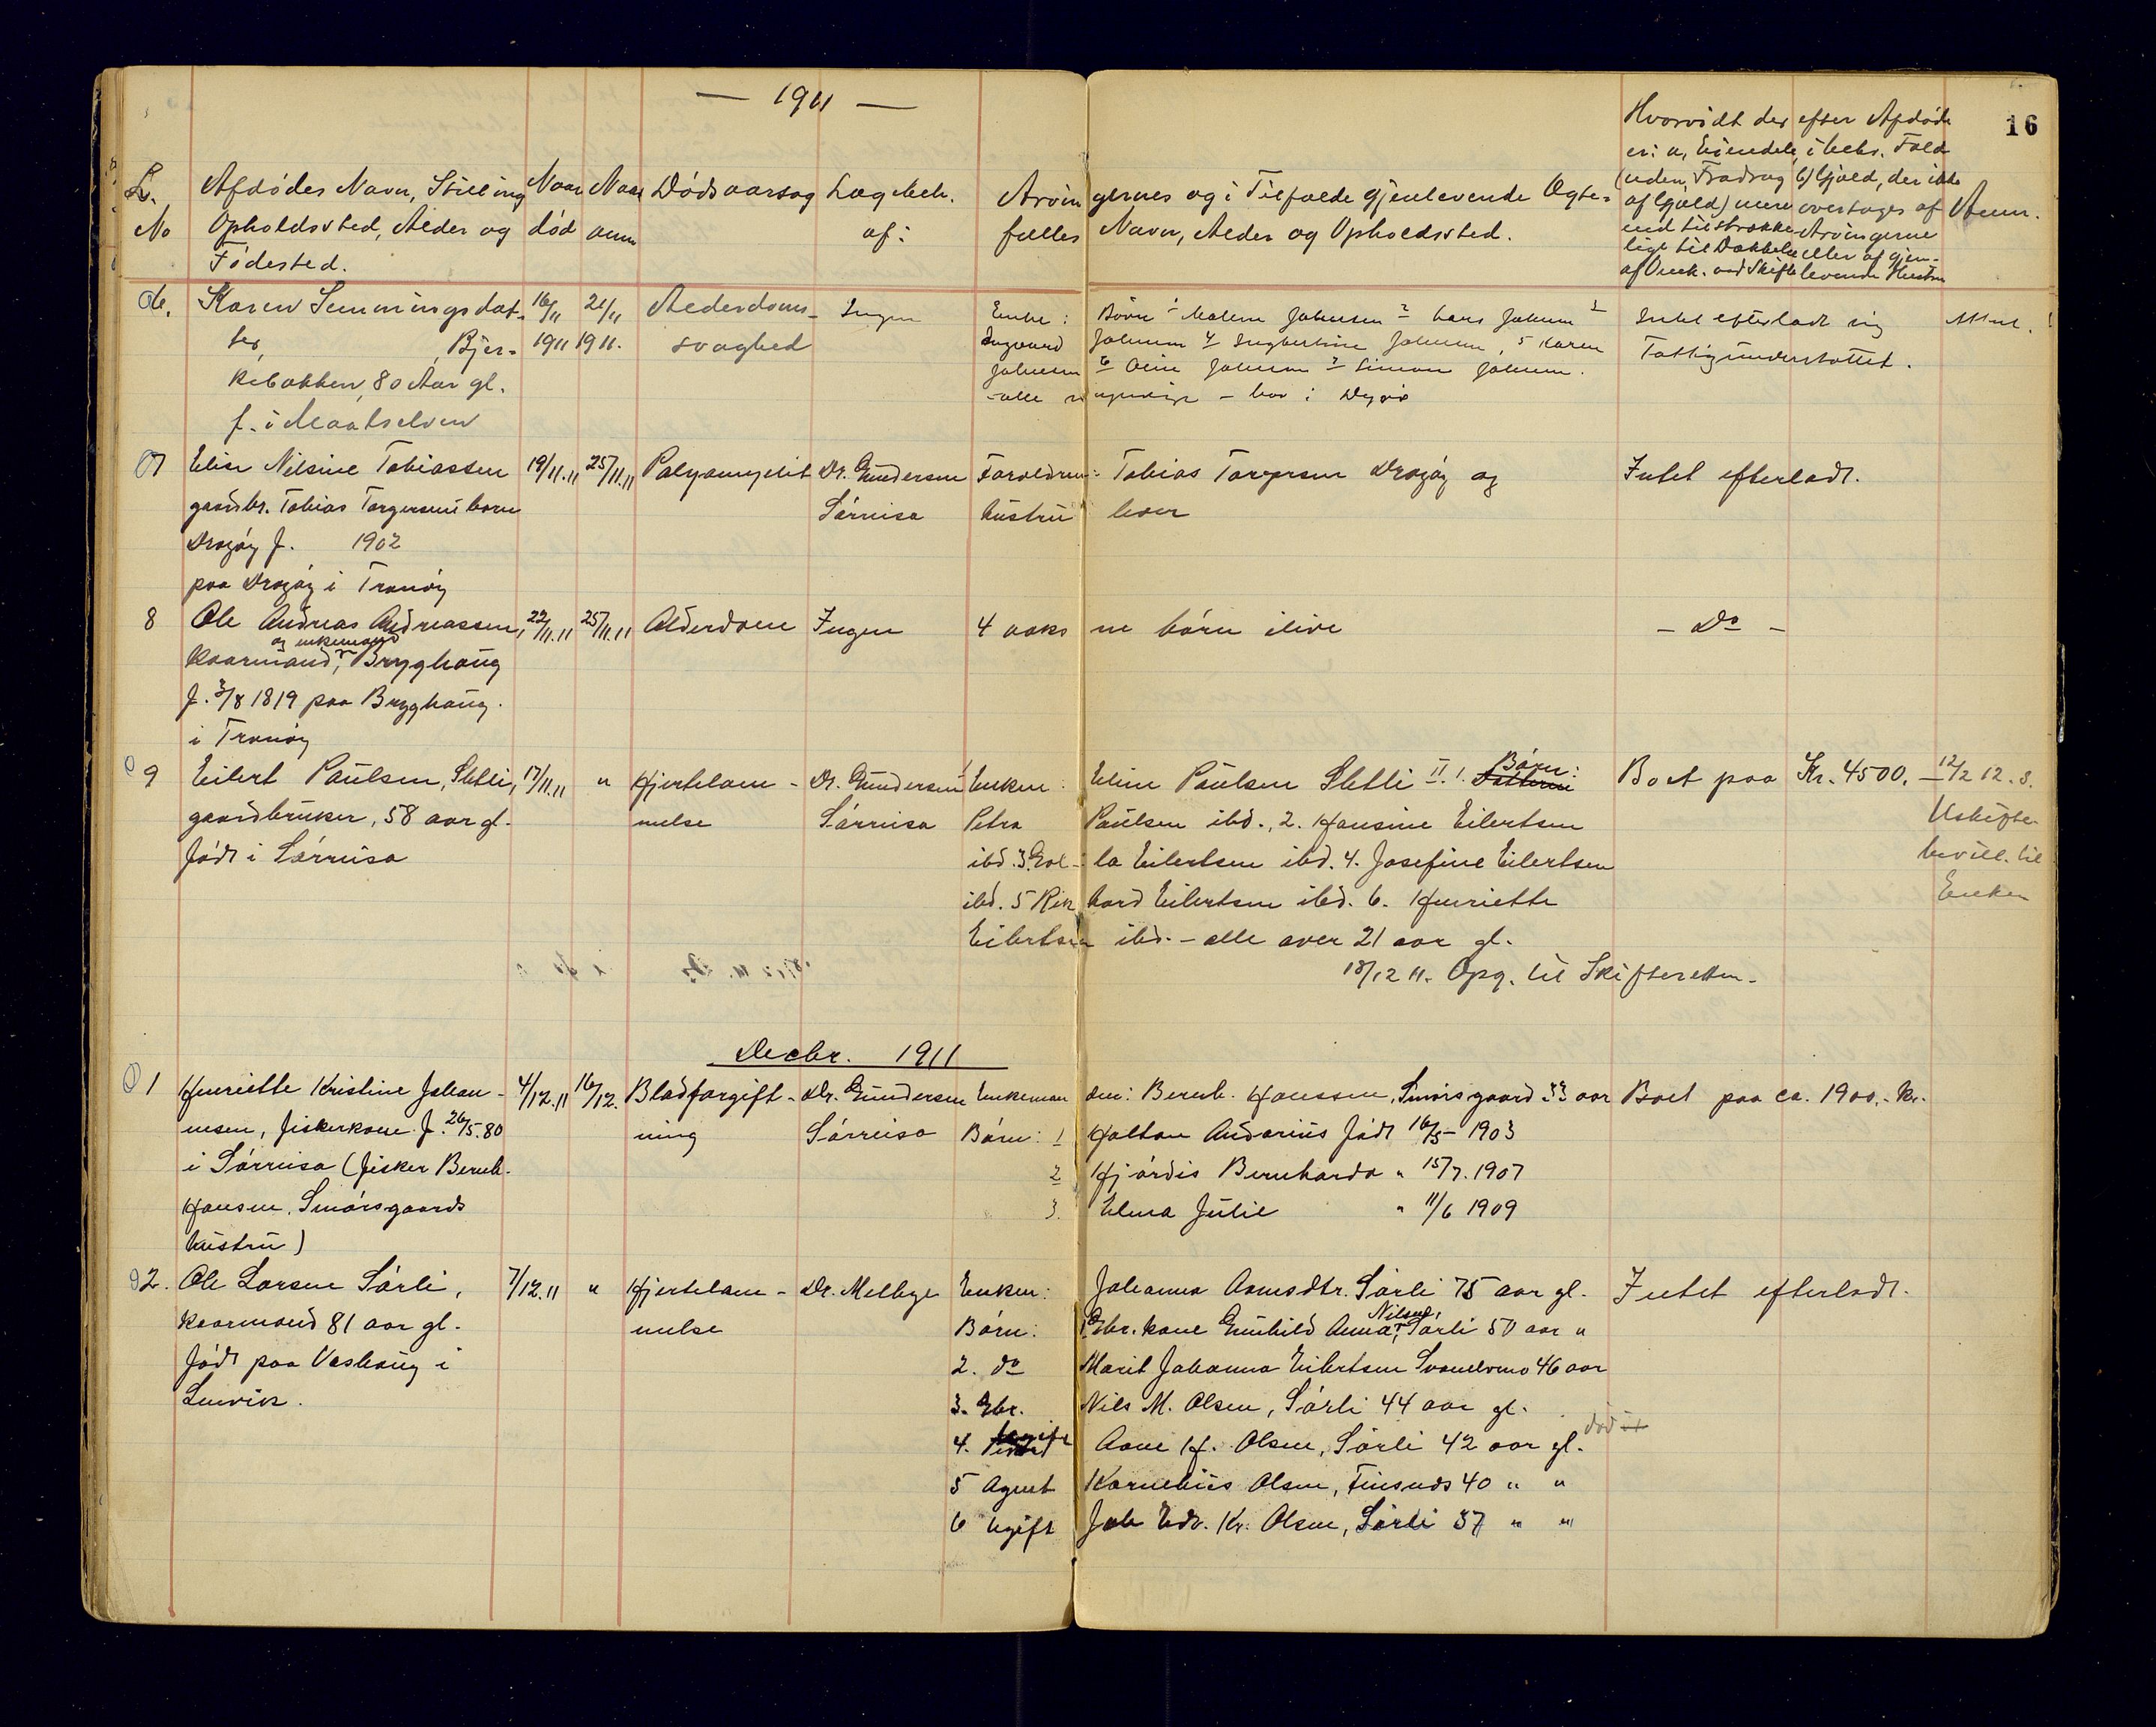 — 1911 —
16
L. No
Afdødes Navn, Stilling
Opholdssted, Alder og
Fødested.
Naar død
Naar anm
Dødsaarsag
Lægbeh. af:
Arvingernes og i Tilfælde gjenlevende Ægte-
fælles Navn, Alder og Opholdssted.
Hvorvidt der efter Afdøde
er: a, Eiendele, i bekr. Fald
(uden Fradrag
af Gjæld) mere
end tilstrække-
lige til Dækkelse
af Omk. ved Skifte
b) Gjæld, der ikke
overtages af
Arvingerne
eller af gjen-
levende Hustru
Anm.
6.
Karen Semmingsdat-
ter, Bjer-
kebakken, 80 Aar gl.
f. i Maalselven
16/11 1911
21/11 1911.
Alderdoms-
svaghed
Ingen
Enke:
Børn 1 Johnsen 2 Lars Johnsen 3
Johnsen 4 Ingbertine Johnsen, 5 Karen
Johnsen 6 Johnsen 7 Simon Johnsen.
-alle
Intet efterladt sig
Fattigunderstøttet.
7
Elise Nilsine Tobiassen
gaardbr. Tobias Torgersens barn
Drøjøy f. 1902
paa Drøjøy i Tranøy
19/11.11
25/11.11
Polyomyelit
Dr. Gundersen
Sørreisa
Forældrene: Tobias Torgersen Drøjøy og
hustru
Intet efterladt.
8
Ole Andreas Andreassen,
kaarmand, og enkemand Brygghaug
f. 3/8 1819 paa Brygghaug.
i Tranøy
22/11.11
25/11.11
Alderdom
Ingen
4 voksne børn ilive
- Do -
9
Eilert Paulsen, Sletli,
gaardbruker, 58 aar gl.
født i Sørreisa
17/11.11
"
Hjertelam-
melse
Dr. Gundersen
Sørreisa
Enken: Eline Paulsen Sletli II. Børn: 1.
Petra Paulsen ibd., 2. Hansine Eilertsen
ibd. 3. Eilertsen ibd. 4. Josefine Eilertsen
ibd. 5 Rikhard Eilertsen ibd. 6. Henriette
Eilertsen ibd. - alle over 21 aar gl.
18/12 11. Opg. til Skifteretten.
Boet paa Kr. 4500.
12/2 12. s.
Uskifte-
bevill. til
Enken
Decbr. 1911
1
Henriette Kristine Johan-
nesen, fiskerkone f. 26/5.80
i Sørreisa (fisker Bernh.
Hansen, Smørsgaards
hustru)
4/12.11
16/12.
Blodforgift-
ning
Dr. Gundersen
Sørreisa
Enkemanden: Bernh. Hanssen, Smørsgaard 33 aar
Børn: 1 Halton Andorius født 16/5 - 1903
2 Hjørdis Bernharda " 15/7. 1907
3. Elma Julie " 11/6 1909
Boet paa ca. 1900.- kr.
2.
Ole Larsen Sørli,
kaarmand 81 aar gl.
født paa Vashaug i
Lenvik.
7/12.11
"
Hjertelam-
melse
Dr. Melbye
Enken: Johanna Aronsdtr. Sørli 75 aar gl.
Børn: 1. Gbr. kone Gunhild Anna Nilsen, Sørli 50 aar "
2. do Marit Johanna Eilertsen Svanelvmo 46 aar
3. Gbr. Nils M. Olsen, Sørli 44 aar gl.
4. Ugift Arne H. Olsen, Sørli 42 aar gl. død
5 Agent Kornelius Olsen, Finsnes 40 " "
6 Ugift Joh Edv. Kr. Olsen, Sørli 37 " "
Intet efterladt.